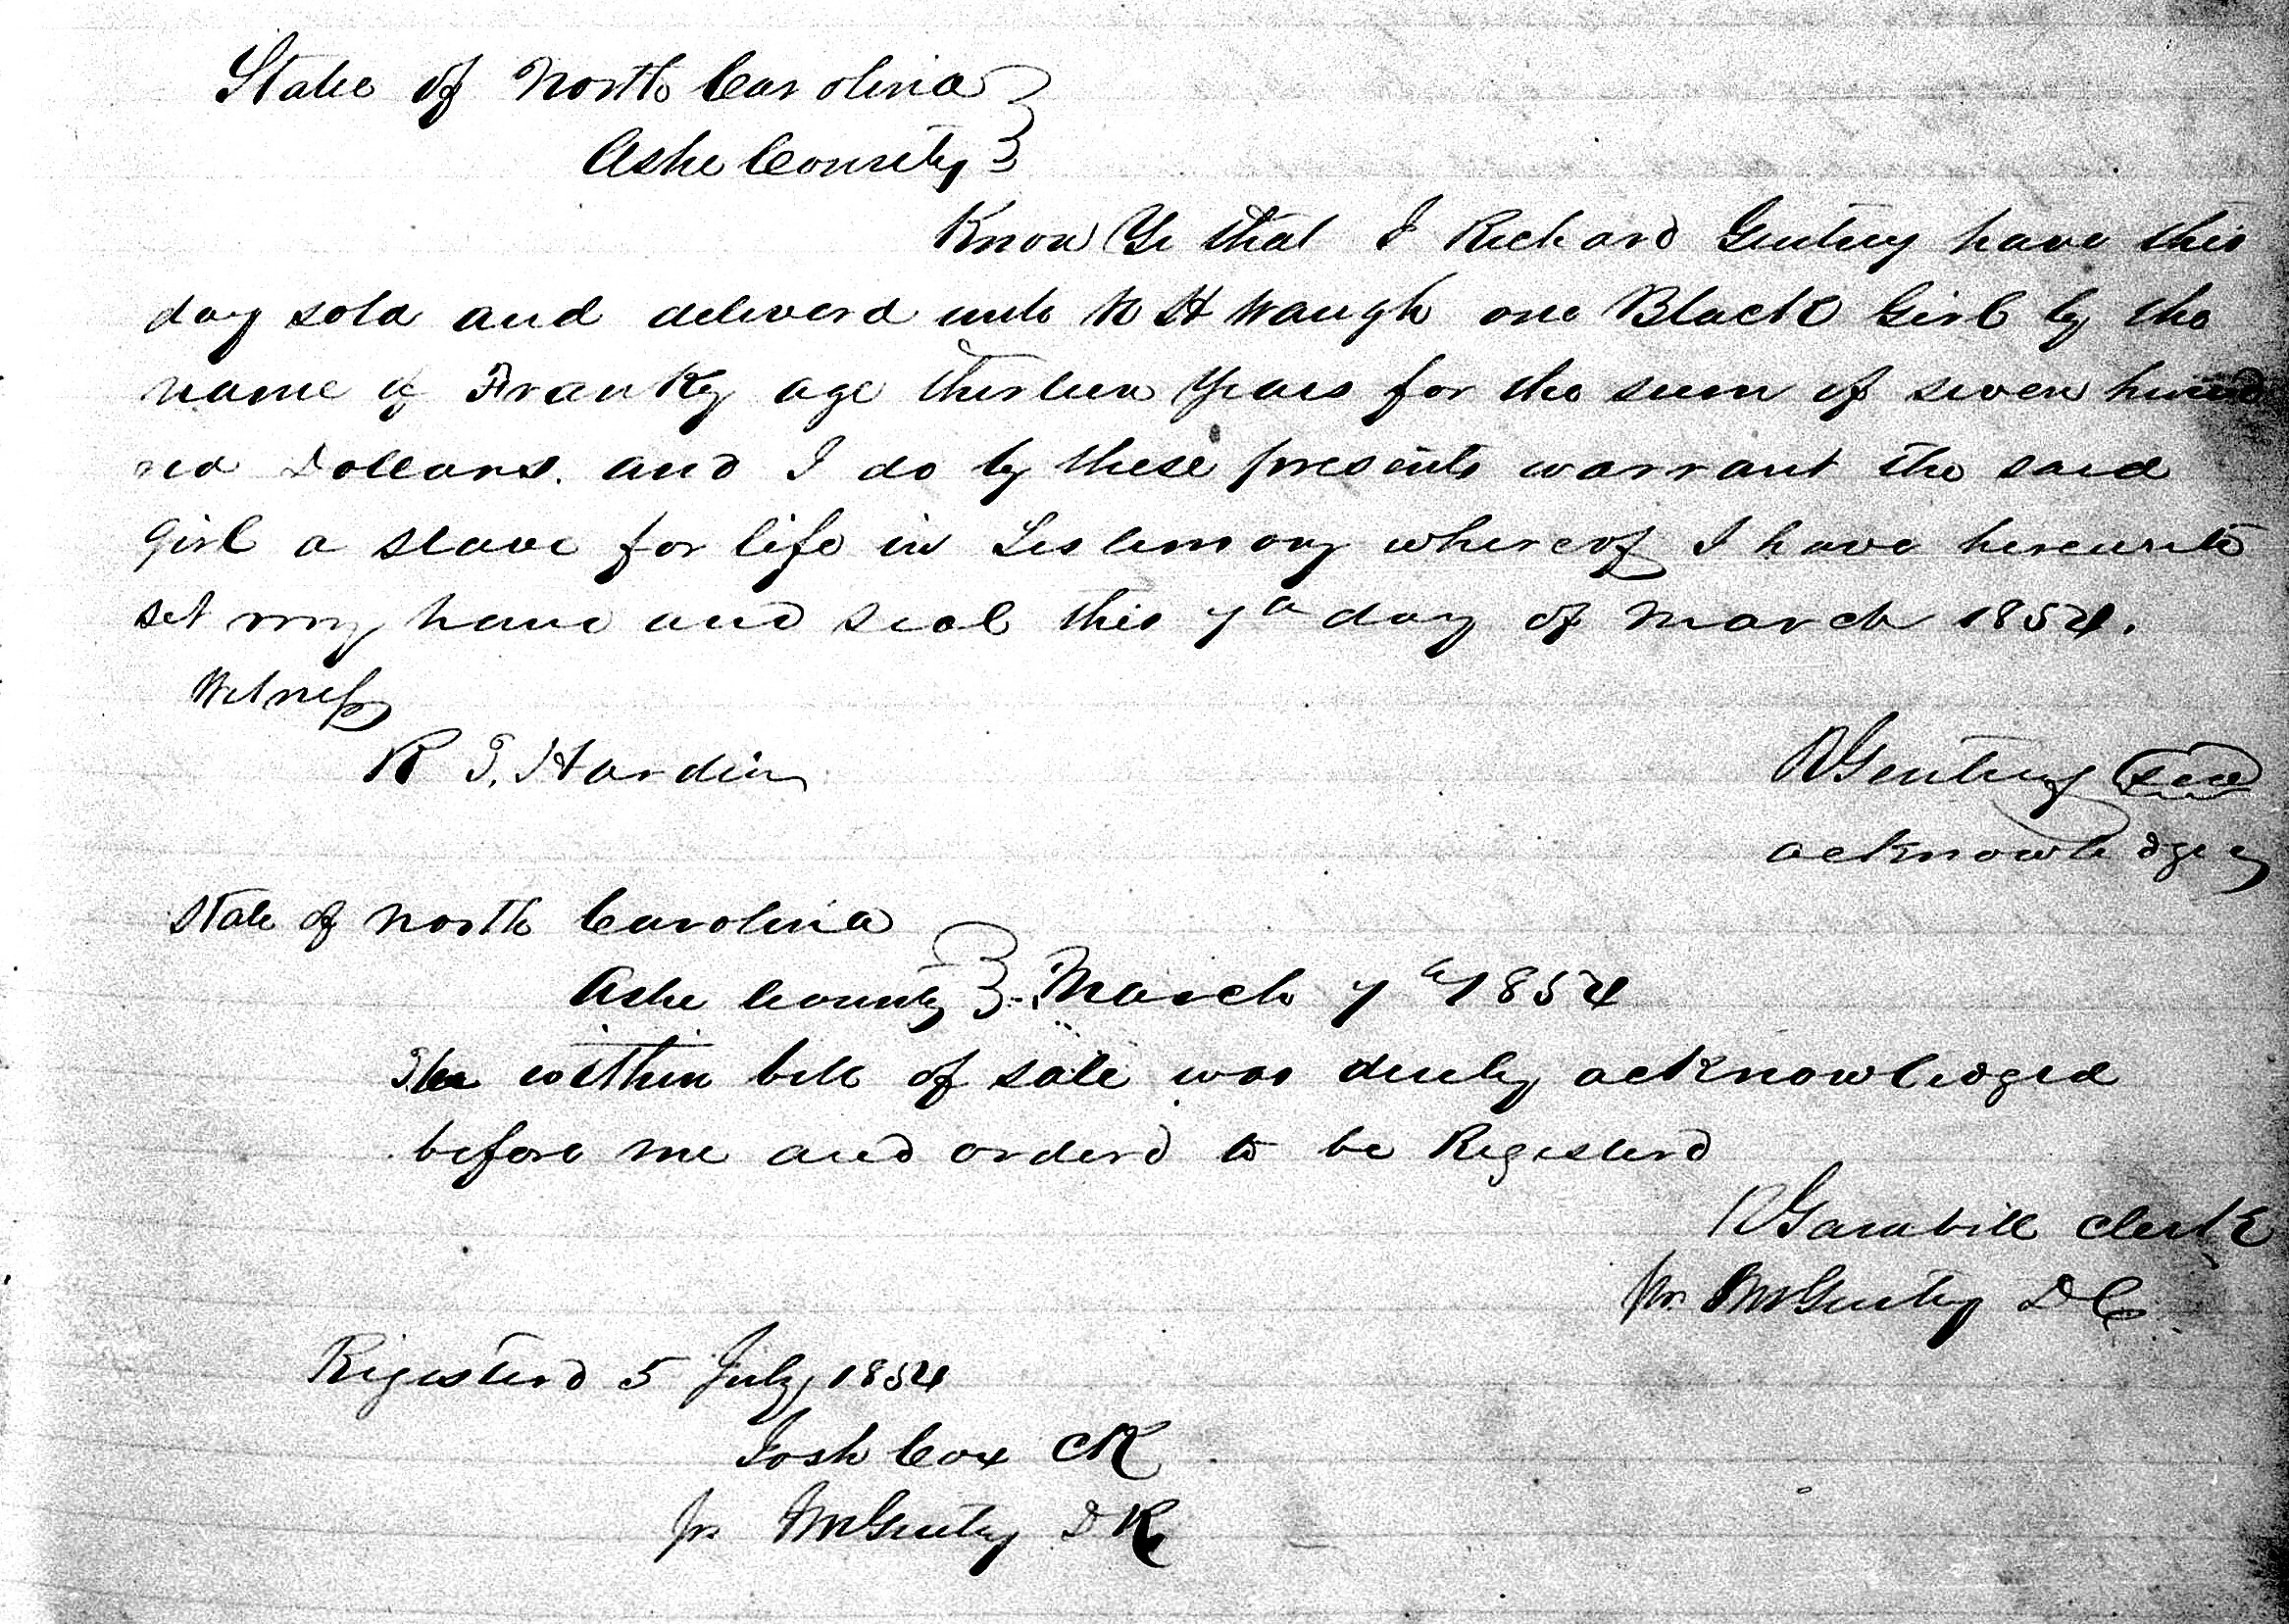 State of North Carolina
Ashe County
Know Ye that I Richard Gentry have this
day sold and deliverd unto H Waugh one Black Girl by the
name of Franky age thirteen Years for the sum of seven hund
red Dollars. and I do by these presents warrant the said
Girl a slave for life in Testimony whereof I have hereunto
set my hand and seal this 7th day of March 1854.
Witness
R T. Hardin
R Gentry seal
acknowledged
State of North Carolina
Ashe County March 7th 1854
The within bill of sale was duely acknowledged
before me and orderd to be Registerd
R Gambill Clerk
pr Gentry DC
Registerd 5 July 1854
Josh Cox CR
pr Gentry DR